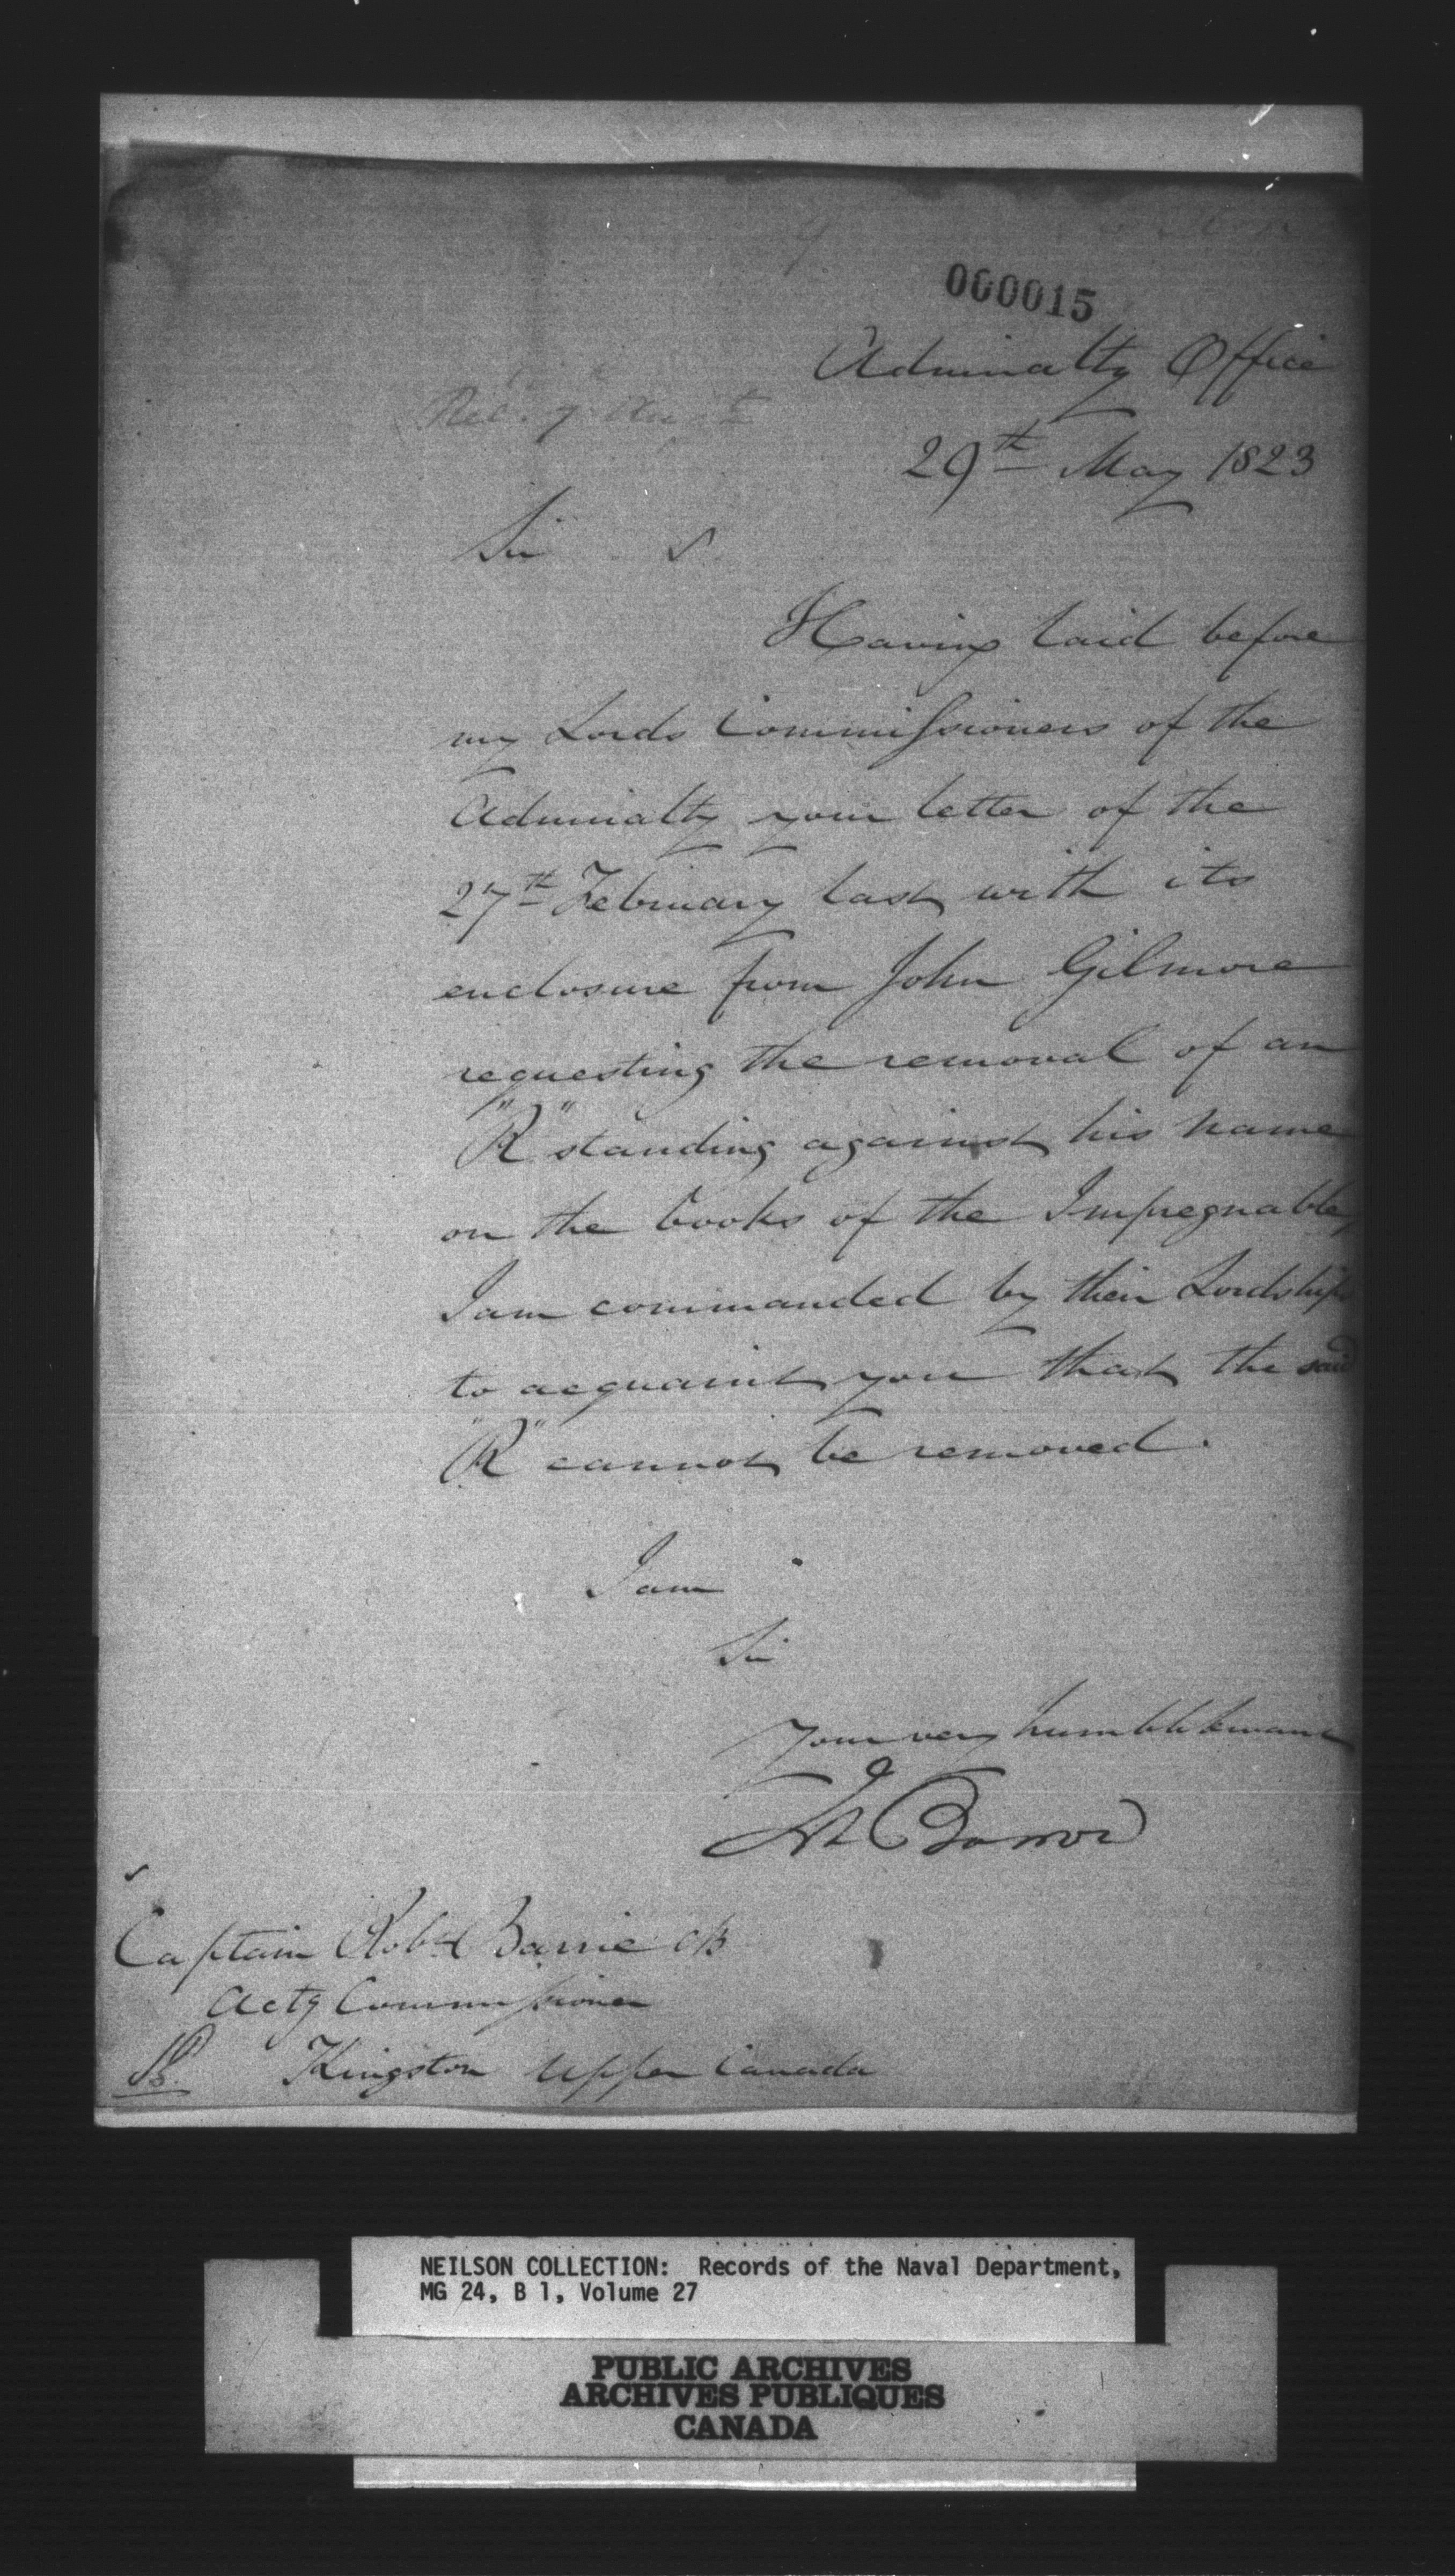 000015
Admiralty Office
29th May 1823
Sir
Having laid before
my Lords Commissioners of the
Admiralty your letter of the
27th February last with its
enclosure from John Gilmore
requesting the removal of an
"R" standing against his name
on the books of the Impregnable,
I am commanded by their Lordships
to acquaint you that the said
"R" cannot be removed.
I am
Sir
Your very humble Servant
Jn Barrow
Captain Robt Barrie CB
Actg Commissioner
Kingston Upper Canada
NEILSON COLLECTION: Records of the Naval Department,
MG 24, B 1, Volume 27
PUBLIC ARCHIVES
ARCHIVES PUBLIQUES
CANADA